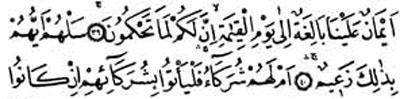 اَيْمَانٌ عَلَيْنَا بَالِغَةٌ اِلٰى يَوْمِ الْقِيٰمَةِ ۙ اِنَّ لَكُمْ لَمَا تَحْكُمُونَ ۚ ٣٩ سَلْهُمْ اَيُّهُمْ
بِذٰلِكَ زَعِيمٌ ۚۛ ٤٠ اَمْ لَهُمْ شُرَكَاءُ ۚۛ فَلْيَأْتُوا بِشُرَكَائِهِمْ اِنْ كَانُوا